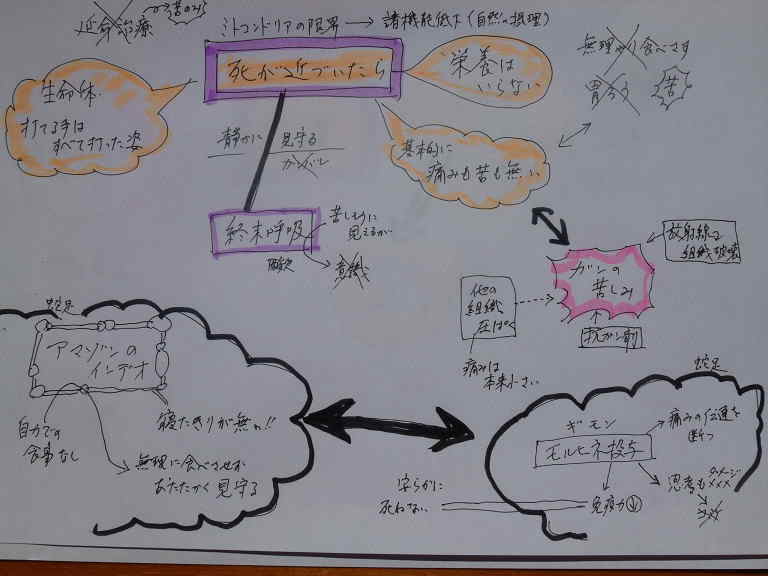 延命治療
ミトコンドリアの限界 → 諸機能低下(自然の摂理)
死が近づいたら
栄養は
いらない
無理やり食べさす
胃ろう
苦
生命体
打てる手は
すべて打った姿
基本的に
痛みも苦も無い
静かに 見守る
ガンバレ
終末呼吸
苦しそうに
見えるが
意識
放射線で
組織破壊
ガンの
苦しみ
抗がん剤
他の
組織
圧ぱく
痛みは
本来小さい
蛇足
アマゾンの
インデオ
自力での
食事なし
寝たきりが無い!!
無理に食べさせず
あたたかく見守る
蛇足
ギモン
モルヒネ投与
痛みの伝達を
断つ
思考も
ダメージ
免疫力↓
安らかに
死ねない